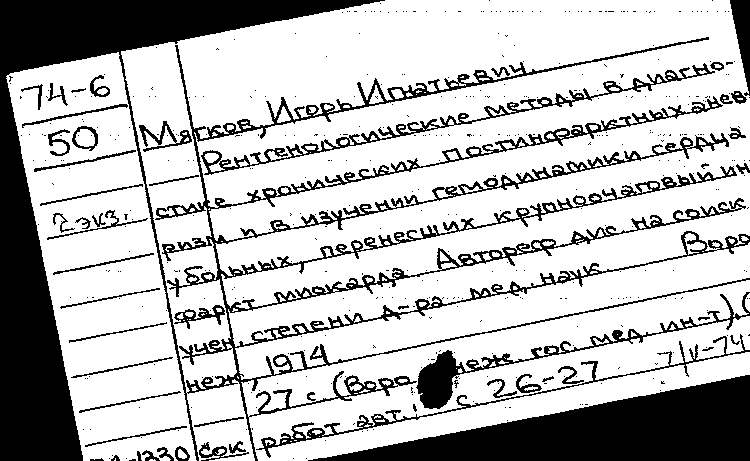 74-6
50
2 экз.
Мягков, Игорь Игнатьевич.
Рентгенологические методы в диагно-
стике хронических постинфарктных анев-
ризм и в изучении гемодинамики сердца
у больных, перенесших крупноочаговый ин
фаркт миокарда Автореф дис. на соиск
учен. степени д-ра мед. наук. Воро
неж, 1974.
27 с. (Воро неж. гос. мед. ин-т). (
сок работ авт.: с 26-27 7/V-74
1330